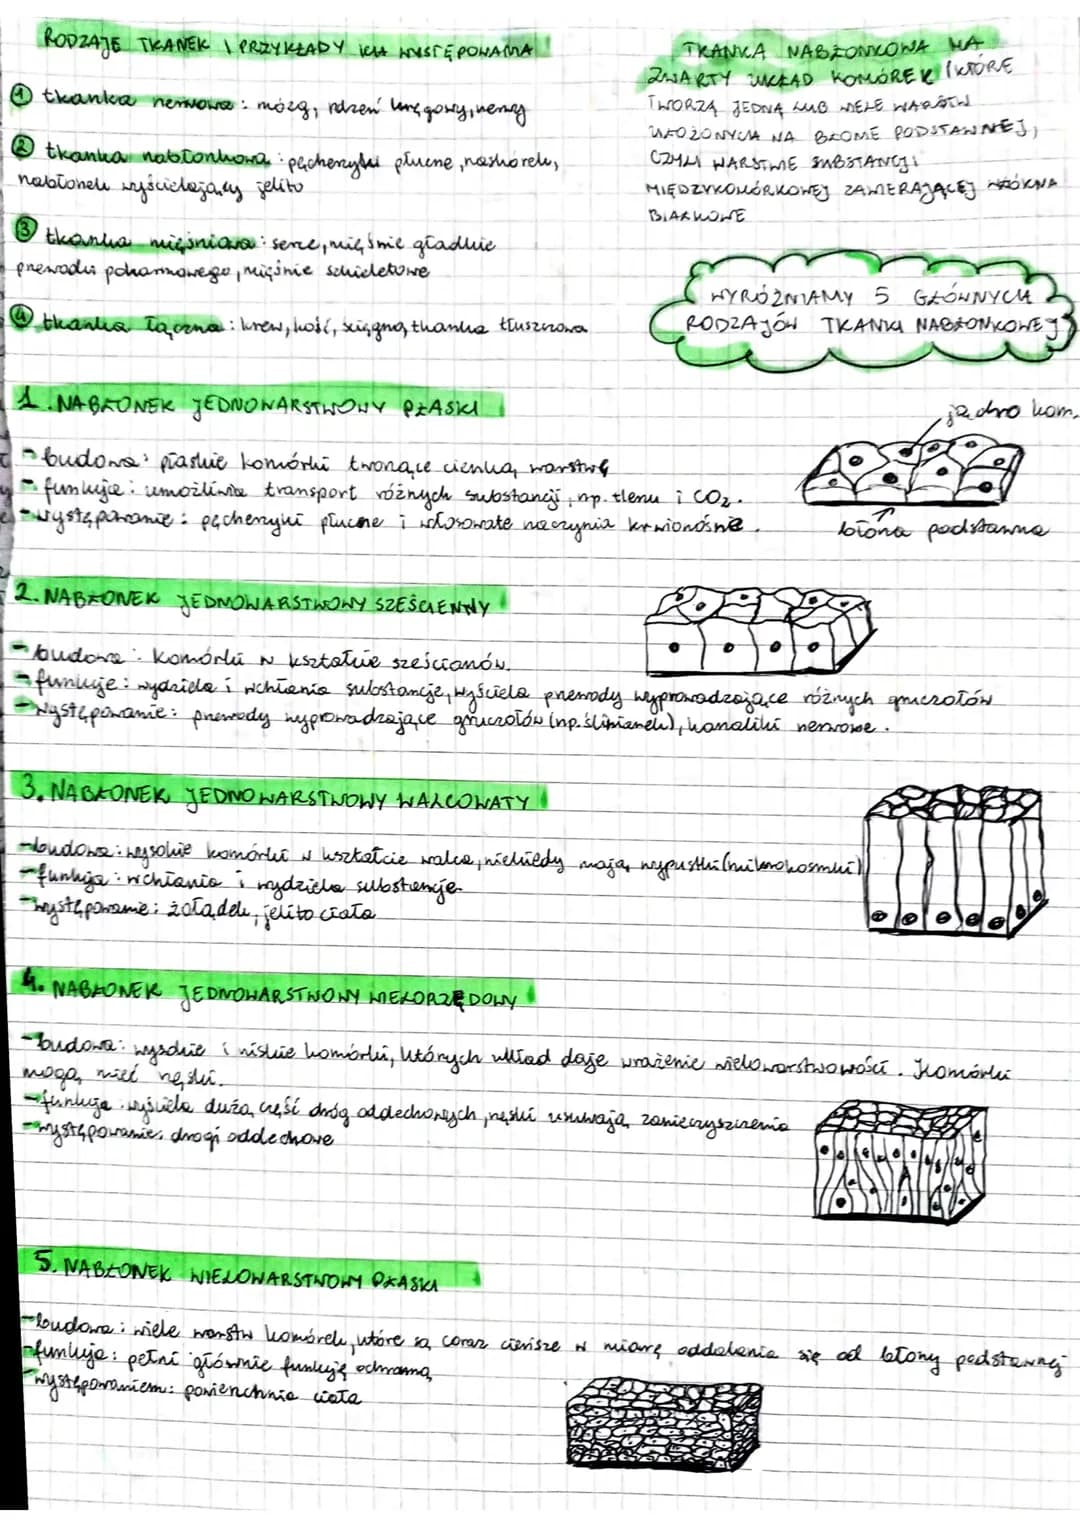 RODZAJE TKANEK I PRZYKŁADY ICH WYSTĘPOWANIA
① tkanka nerwowa: mózg, rdzeń kręgowy, nerwy
② tkanka nabłonkowa: pęcherzyki płucne, naskórek,
nabłonek wyściełający jelito
③ tkanka mięśniowa: serce, mięśnie gładkie
przewodu pokarmowego, mięśnie szkieletowe
④ tkanka łączna: krew, kość, ścięgna, tkanka tłuszczowa
TKANKA NABŁONKOWA MA
ZWARTY UKŁAD KOMÓREK, KTÓRE
TWORZĄ JEDNĄ LUB WIELE WARSTW
UŁOŻONYCH NA BŁONIE PODSTAWNEJ,
CZYLI WARSTWIE SUBSTANCJI
MIĘDZYKOMÓRKOWEJ ZAWIERAJĄCEJ WŁÓKNA
BIAŁKOWE
WYRÓŻNIAMY 5 GŁÓWNYCH
RODZAJÓW TKANKI NABŁONKOWEJ
1. NABŁONEK JEDNOWARSTWOWY PŁASKI
- budowa: płaskie komórki tworzące cienką warstwę
- funkcje: umożliwia transport różnych substancji, np. tlenu i CO₂.
- występowanie: pęcherzyki płucne i włosowate naczynia krwionośne.
jądro kom.
błona podstawna
2. NABŁONEK JEDNOWARSTWOWY SZEŚCIENNY
- budowa: komórki w kształcie sześcianów.
- funkcje: wydziela i wchłania substancje, wyściela przewody wyprowadzające różnych gruczołów
- występowanie: przewody wyprowadzające gruczołów (np. ślinianek), kanaliki nerwowe.
3. NABŁONEK JEDNOWARSTWOWY WALCOWATY
- budowa: wysokie komórki w kształcie walca, niekiedy mają wypustki (mikrokosmki)
- funkcja: wchłania i wydziela substancje
- występowanie: żołądek, jelito ciała
4. NABŁONEK JEDNOWARSTWOWY WIELORZĘDOWY
- budowa: wysokie i niskie komórki, których układ daje wrażenie wielowarstwowości. Komórki
mogą mieć rzęski.
- funkcja: wyściela dużą część dróg oddechowych, rzęski usuwają zanieczyszczenia
- występowanie: drogi oddechowe
5. NABŁONEK WIELOWARSTWOWY PŁASKI
- budowa: wiele warstw komórek, które są coraz cieńsze w miarę oddalania się od błony podstawnej
- funkcja: pełni głównie funkcję ochronną
- występowaniem: powierzchnia ciała